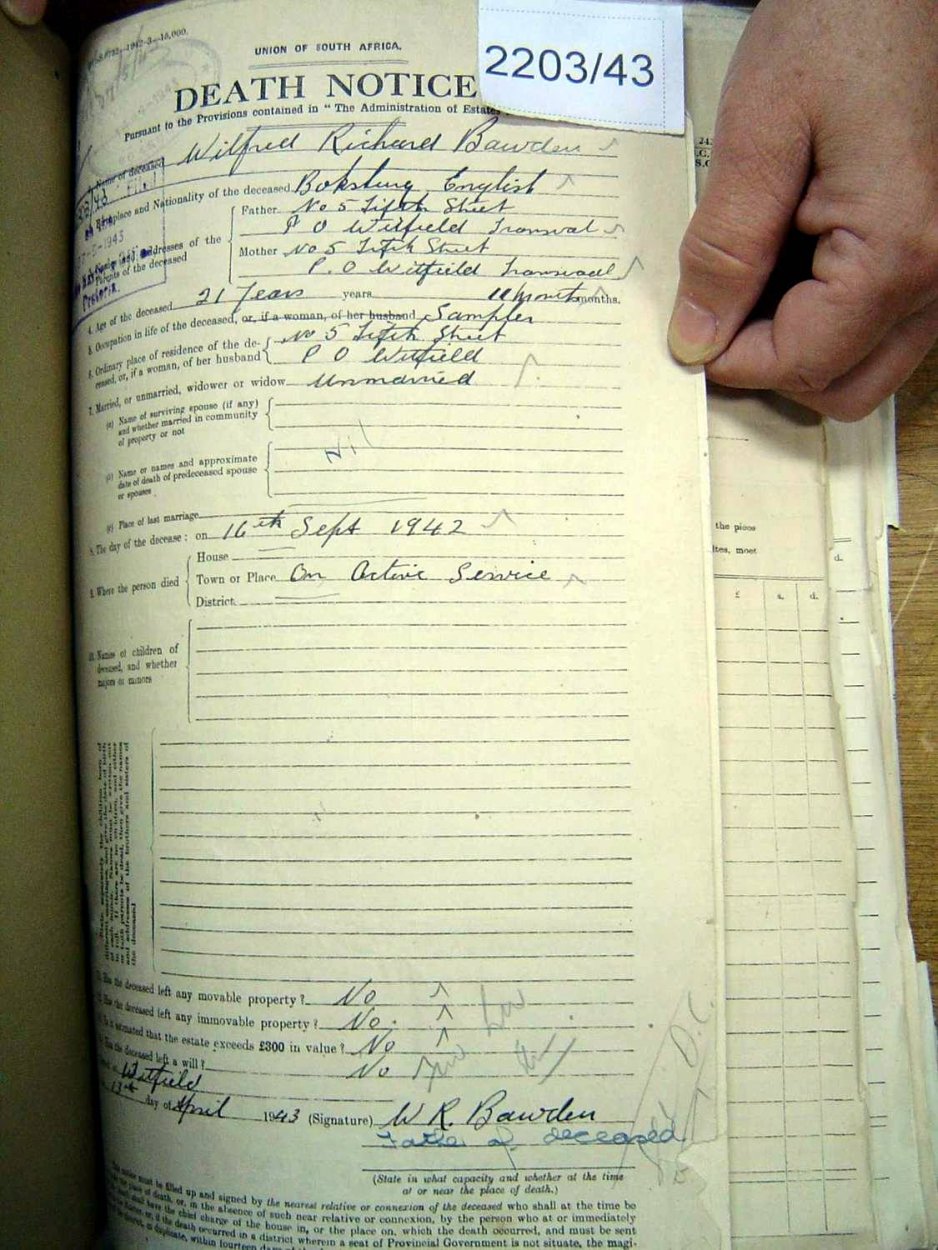 UNION OF SOUTH AFRICA.
2203/43
DEATH NOTICE
Pursuant to the Provisions contained in "The Administration of Estates
Name of deceased Wilfred Richard Bawden
Birthplace and Nationality of the deceased Boksburg English
Names and addresses of the Parents of the deceased
Father No 5 Fifth Street
P O Witfield Transvaal
Mother No 5 Fifth Street
P. O Witfield Transvaal
4. Age of the deceased 21 Years years 11 Months months.
5. Occupation in life of the deceased, or, if a woman, of her husband Sampler
6. Ordinary place of residence of the de-
ceased, or, if a woman, of her husband
No 5 Fifth Street
P O Witfield
7. Married, or unmarried, widower or widow Unmarried
(a) Name of surviving spouse (if any)
and whether married in community
of property or not
(b) Name or names and approximate
date of death of predeceased spouse
or spouses
Nil
(c) Place of last marriage
8. The day of the decease: on 16th Sept 1942
9. Where the person died
House
Town or Place On Active Service
District
10. Names of children of
deceased, and whether
majors or minors
Has the deceased left any movable property? No
Has the deceased left any immovable property? No.
Is it estimated that the estate exceeds £300 in value? No
Has the deceased left a will? No
Witfield
day of April 1943 (Signature) W R. Bawden
Father of deceased
(State in what capacity and whether at the time
at or near the place of death.)
notice must be filled up and signed by the nearest relative or connexion of the deceased who shall at the time be
the place of death, or, in the absence of such near relative or connexion, by the person who at or immediately
shall have the chief charge of the house in, or the place on, which the death occurred, and must be sent
if the death occurred in a district wherein a seat of Provincial Government is not situate, the magi-
in duplicate, within fourteen days
the piece
moet
£ s. d.
d.